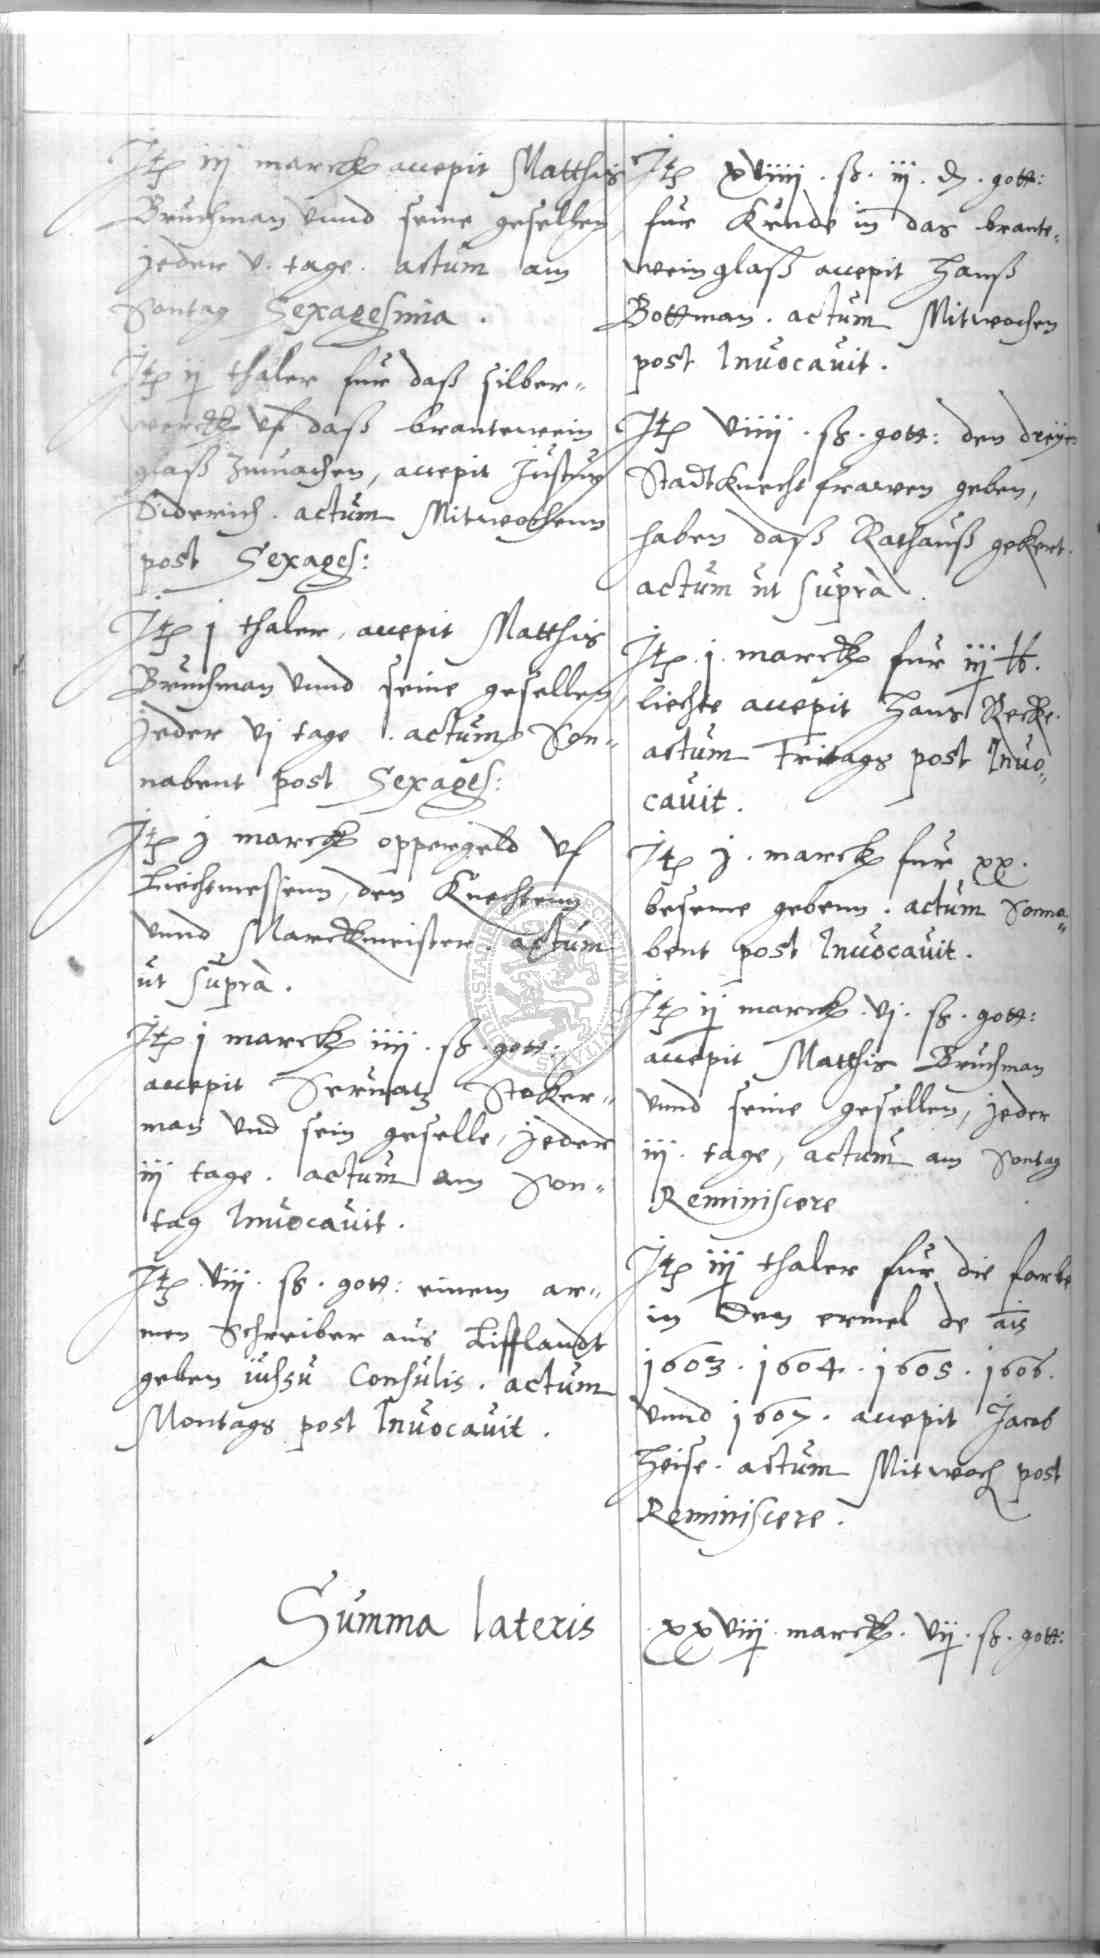 Jt͠ iij marck accepit Matthis
Bruchman vnnd seine gesellen
jeder v. tage. actum am
Sontag Sexagesima.
Jt͠ ij thaler fur daß silber-
werck vf daß brantewein
glaß zumachen, accepit Justus
Diderich. actum Mitwochenn
post Sexages:
Jt͠ j thaler, accepit Matthis
Bruchman vnnd seine gesellen,
jeder vj tage. actum Son-
nabent post Sexages:
Jt͠ j marck oppergeld vf
Liechtmessenn, den Knechtenn
vnnd Marckmeister. actum
ut supra.
Jt͠ j marck iiij. ß. gott:
accepit Seruatz Stoker-
man vnd sein geselle, jeder
iij tage. actum am Son-
tag Inuocauit.
Jt͠ viij. ß. gott: einem ar-
men Schreiber aus Lifflandt
geben iussu Consulis. actum
Montags post Inuocauit.
Jt͠ xviiij. ß. iij. d. gott:
fur in das brante-
weinglaß accepit Hanß
Bottman. actum Mitwochen
post Inuocauit.
Jt͠ viiij. ß. gott: den dreyen
Stadtknecht frawen geben,
haben daß Rathauß gekert.
actum ut supra.
Jt͠. j. marck fur iij ℔.
liechte accepit Hans Recke.
actum Fritags post Inuo-
cauit.
Jt͠ j. marck fur xx.
beseme gebenn. actum Sonna-
bent post Inuocauit.
Jt͠ ij marck. vj. ß. gott:
accepit Matthis Bruchman
vnnd seine gesellen, jeder
iij. tage, actum am Sontag
Reminiscere
Jt͠ iij thaler fur die farbe
in den ermel de a͠is
1603. 1604. 1605. 1606.
vnnd 1607. accepit Jacob
Heise. actum Mitwoch post
Reminiscere.
Summa lateris xxviij. marck. vij. ß. gott: